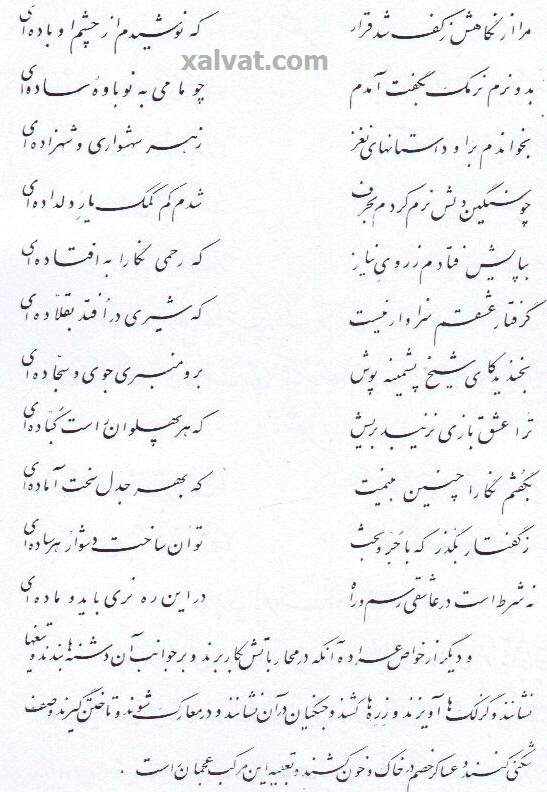 مرا از نگاهش ز کف شد قرار که نوشیدم از چشم او باده‌ای
xalvat.com
بدو نرم نرمک بگفت آمدم چو مامی به نوباوهٔ ساده‌ای
بخواندم بر او داستانهای نغز ز هر سو شهسواری و شهزاده‌ای
چو سنگین دلش نرم کردم بحرف شدم کم کمک یار دلداده‌ای
بپایش فتادم ز روی نیاز که رحمی نگارا به افتاده‌ای
گرفتار عشقم سزاوار نیست که شیری در افتد بقلاده‌ای
بخندید کای شیخ پشمینه پوش برو منبری جوی و سجاده‌ای
ترا عشق بازی نزیبد بریش که هر پهلوان است کباده‌ای
بگفتم نگارا چنین بینمت که بهر جدل سخت آماده‌ای
ز گفتار بگذر که با جر و بحث توان ساخت دشوار هر ساده‌ای
نه شرط است در عاشقی رسم و راه در این ره نری باید و ماده‌ای
و دیگر از خواص عراده آنکه در محارباتش کار برند و بر جوانب آن دشنه‌ها بندند و تیغها
نشانند و گرزک‌ها آویزند و زره‌ها کشند و جنگیان در آن نشانند و در معارک شوند و تاختن گیرند و صف
شکنی کنند و عساکر خصم در خاک و خون کشند و تعبیه این مرکب عجمان است .